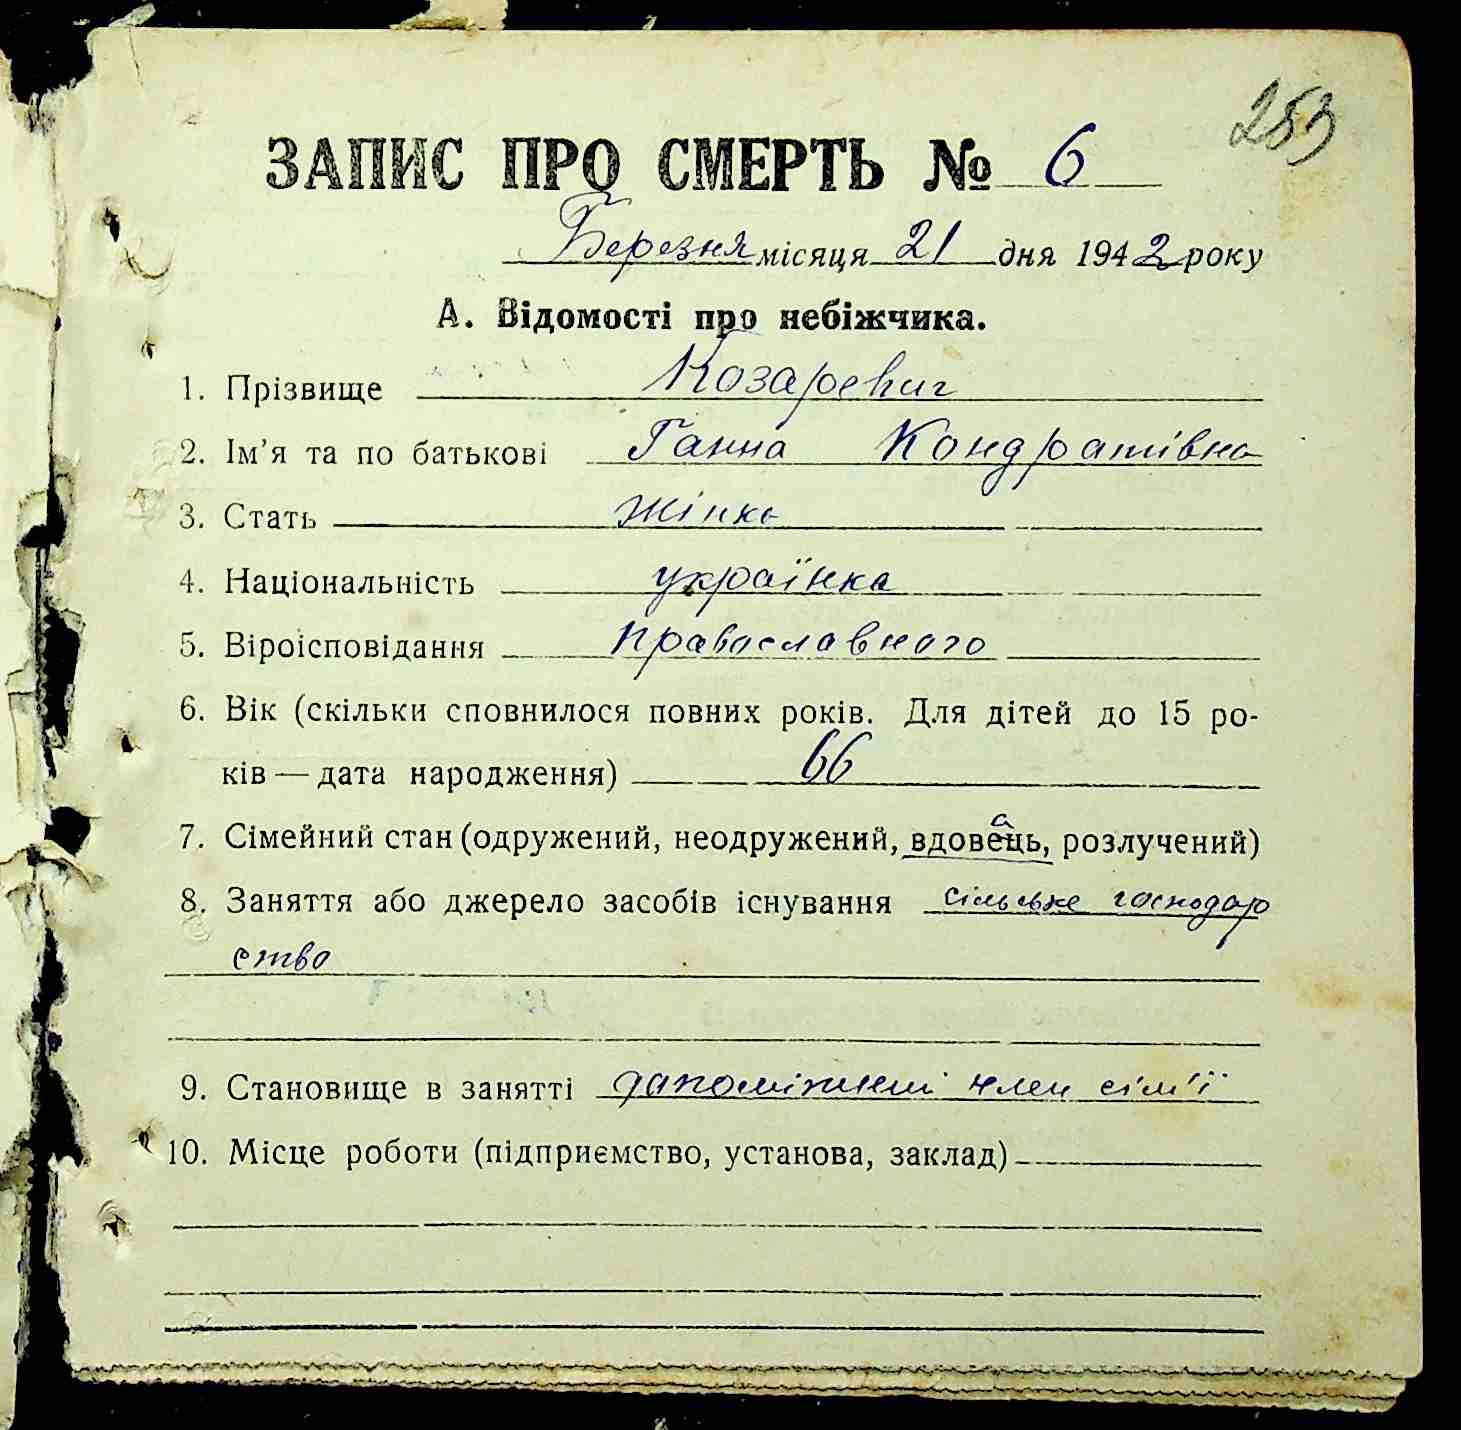 253
ЗАПИС ПРО СМЕРТЬ № 6
Березня місяця 21 дня 1942 року
А. Відомості про небіжчика.
1. Прізвище Козаревич
2. Ім'я та по батькові Ганна Кондратівна
3. Стать жінка
4. Національність українка
5. Віроісповідання православного
6. Вік (скільки сповнилося повних років. Для дітей до 15 ро-
ків — дата народження) 66
7. Сімейний стан (одружений, неодружений, вдовець, розлучений)
8. Заняття або джерело засобів існування сільське господар
ство
9. Становище в занятті член сім'ї
10. Місце роботи (підприємство, установа, заклад)